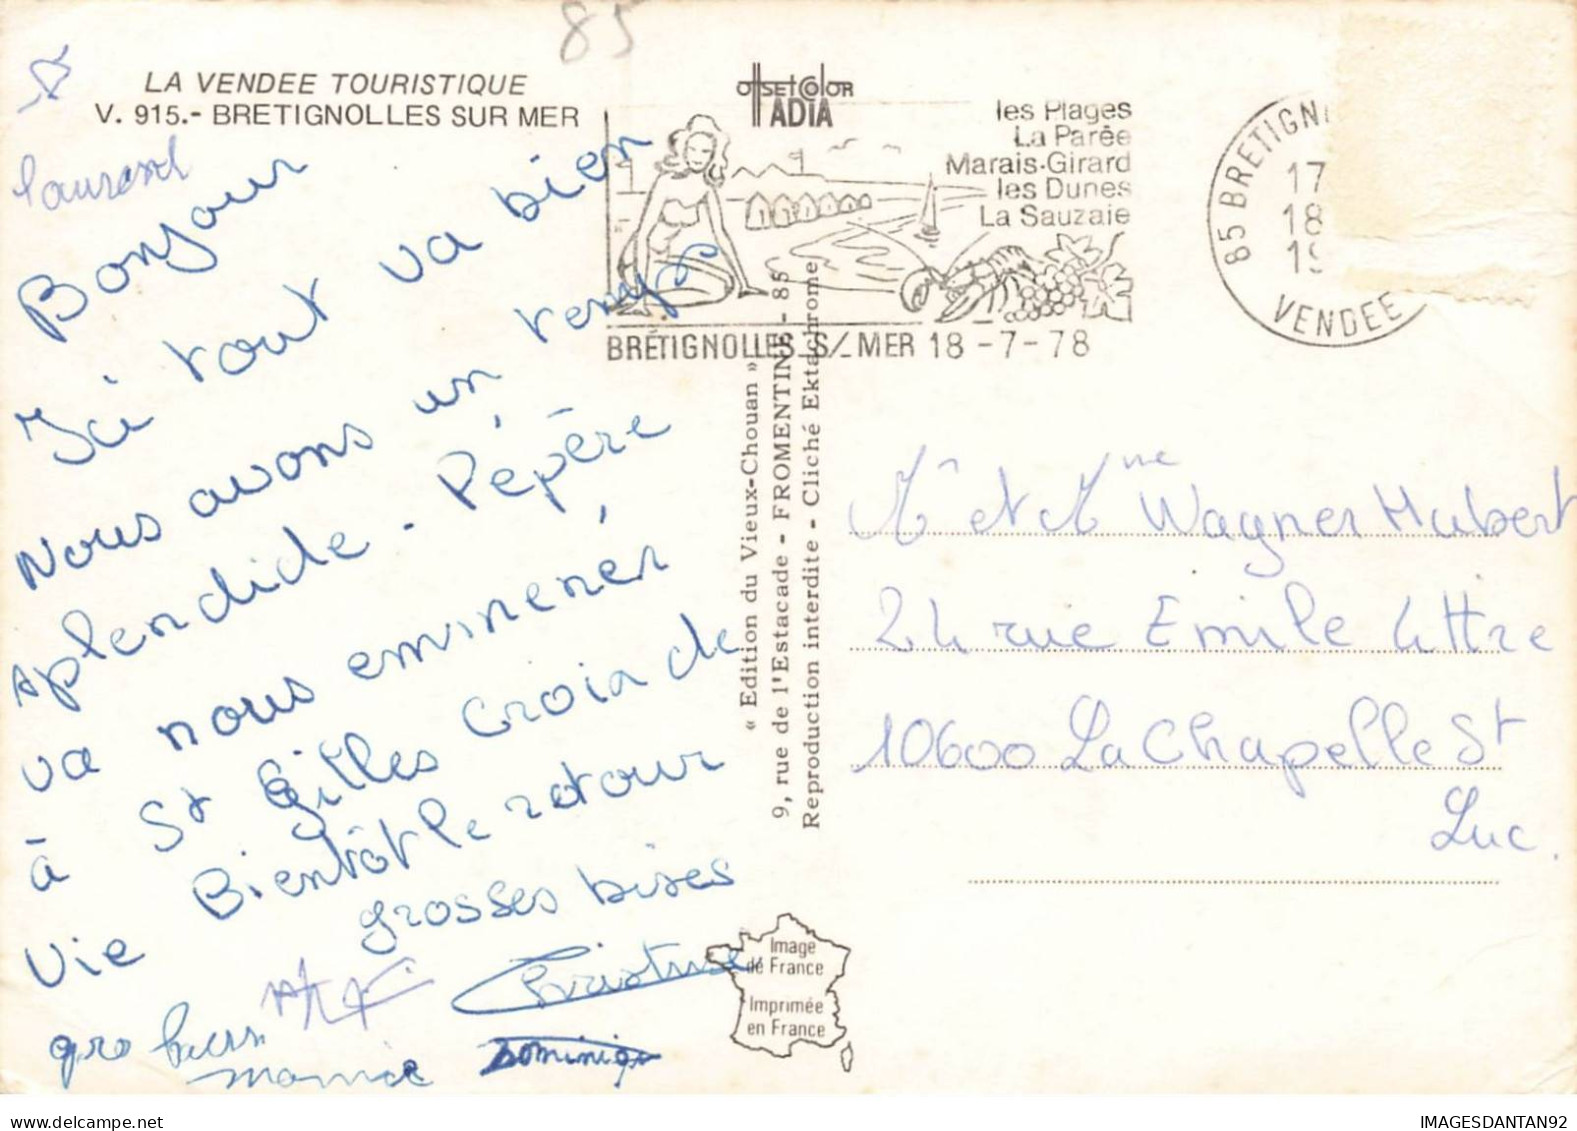 85
LA VENDEE TOURISTIQUE
V. 915.- BRETIGNOLLES SUR MER
OffsetColor
ADIA
les Plages
La Parée
Marais-Girard
les Dunes
La Sauzaie
BRETIGNOLLES S/_MER 18 -7-78
85 BRETIGN
17
18
19
VENDEE
Bonjour
Ici tout va bien
Nous avons un temps
splendide - Pépère
va nous emmener
à St Gilles Croix de
Vie Bientôt le retour
grosses bises
Christine
Dominique
« Edition du Vieux-Chouan »
9, rue de l'Estacade - FROMENTINE - 85
Reproduction interdite - Cliché Ektachrome
Mr et Mme Wagner Hubert
24 rue Emile Littre
10600 La Chapelle St
Luc.
Image
de France
Imprimée
en France
IMAGESDANTAN92